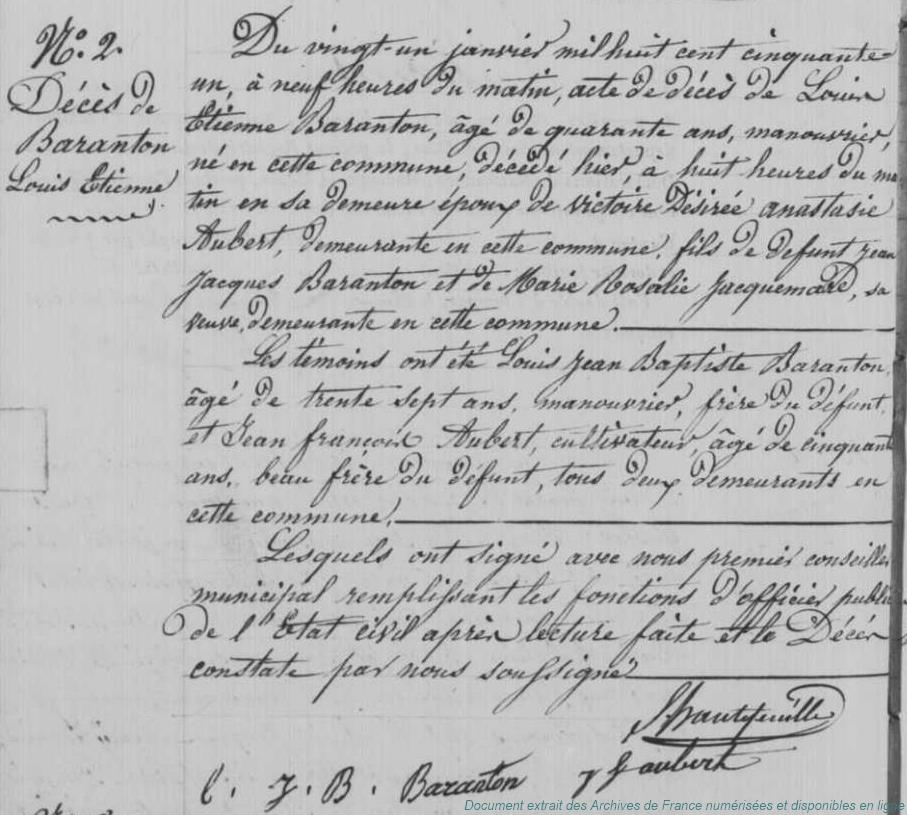 N.o 2.
Décès de
Baranton
Louis Etienne
Du vingt-un janvier mil huit cent cinquante
un, à neuf heures du matin, acte de décès de Louis
Etienne Baranton, âgé de quarante ans, manouvrier,
né en cette commune, décédé hier, à huit heures du ma
tin en sa demeure époux de Victoire Désirée anastasie
Aubert, demeurante en cette commune, fils de defunt jean
Jacques Baranton et de Marie Rosalie Jacquemard, sa
veuve, demeurante en cette commune.
Les témoins ont été Louis Jean Baptiste Baranton,
âgé de trente sept ans, manouvrier, frère du défunt,
et Jean françois Aubert, cultivateur, âgé de cinquante
ans, beau frère du défunt, tous deux demeurants en
cette commune.
Lesquels ont signé avec nous premier conseiller
municipal remplissant les fonctions d'officier public
de l'Etat civil après lecture faite et le Décès
constaté par nous soussigné
Hautefeuille
l. J. B. Baranton
J f aubert
Document extrait des Archives de France numérisées et disponibles en ligne